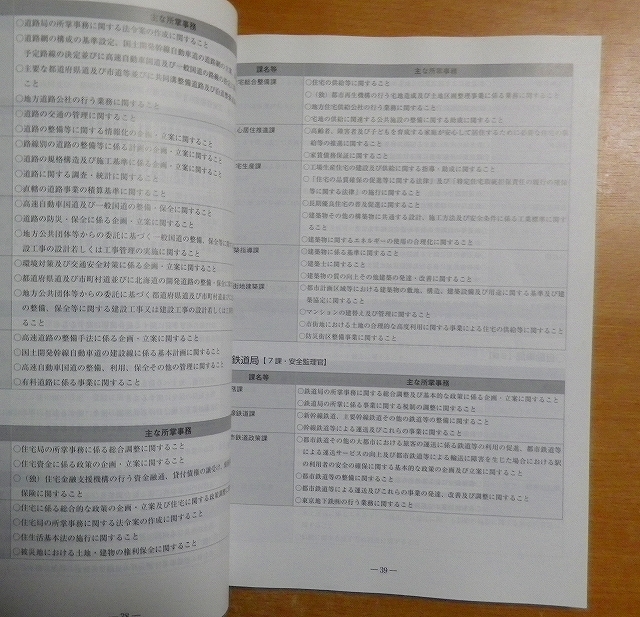 主な所掌事務
○道路局の所掌事務に関する法令案の作成に関すること
○道路網の構成の基準設定、国土開発幹線自動車道の道路網の
予定路線の決定並びに高速自動車国道及び一般国道の路線の
○主要な都道府県道及び市道等並びに共同溝整備道路及び沿道整備
こと
○地方道路公社の行う業務に関すること
○道路の交通の管理に関すること
○道路の整備等に関する情報化の企画・立案に関すること
○路線別の道路の整備等に係る計画の企画・立案に関すること
○道路の規格構造及び施工基準に係る企画・立案に関すること
○道路に関する調査・統計に関すること
○直轄の道路事業の積算基準に関すること
○高速自動車国道及び一般国道の整備・保全に関すること
○道路の防災・保全に係る企画・立案に関すること
○地方公共団体等からの委託に基づく一般国道の整備、保全等に
設工事の設計若しくは工事管理の実施に関すること
○環境対策及び交通安全対策に係る企画・立案に関すること
○都道府県道及び市町村道並びに北海道の開発道路の整備・保全に関すること
○地方公共団体等からの委託に基づく都道府県道及び市町村道
の整備、保全等に関する建設工事又は建設工事の設計若しくは工
ること
○高速道路の整備手法に係る企画・立案に関すること
○国土開発幹線自動車道の建設線に係る基本計画に関すること
○高速自動車国道の整備、利用、保全その他の管理に関すること
○有料道路に係る事業に関すること
主な所掌事務
○住宅局の所掌事務に係る総合調整に関すること
○住宅資金に係る政策の企画・立案に関すること
○(独)住宅金融支援機構の行う資金融通、貸付債権の譲受け、
保険に関すること
○住宅に係る総合的な政策の企画・立案及び住宅に関する政策
○住宅局の所掌事務に関する法令案の作成に関すること
○住生活基本法の施行に関すること
○被災地における土地・建物の権利保全に関すること
課名等 主な所掌事務
宅総合整備課 ○住宅の供給等に関すること
○(独)都市再生機構の行う宅地造成及び土地区画整理事業に係る業務に関すること
○地方住宅供給公社の行う業務に関すること
○宅地の供給に関連する公共施設の整備に関する助成に関すること
心居住推進課 ○高齢者、障害者及び子どもを育成する家庭が安心して
給等の推進に関すること
○家賃債務保証に関すること
宅生産課 ○工場生産住宅の建設及び供給に関する指導・助成に関すること
○「住宅の品質確保の促進等に関する法律」及び「特定住宅瑕疵担保責任の履行の確保
等に関する法律」の施行に関すること
○長期優良住宅の普及の促進に関すること
○建築物その他の構築物に共通する設計、施工方法及び安全条件に係る工業標準に関す
ること
○建築物に関するエネルギーの使用の合理化に関すること
築指導課 ○建築物に係る基準に関すること
○建築士に関すること
○建築物の質の向上その他建築の発達・改善に関すること
街地建築課 ○都市計画区域等における建築物の敷地、構造、建築設備及び用途に関する基準及び建
築協定に関すること
○マンションの建替え及び管理に関すること
○市街地における土地の合理的な高度利用に関する事業による住宅の供給等に関すること
○防災街区整備事業に関すること
鉄道局【7課・安全監理官】
課名等 主な所掌事務
務課 ○鉄道局の所掌事務に関する総合調整及び基本的な政策に係る企画・立案に関すること
○鉄道局の所掌に係る事業に関する税制の調整に関すること
線鉄道課 ○新幹線鉄道、主要幹線鉄道その他の鉄道等の整備に関すること
○幹線鉄道等による運送及びこれらの事業に関すること
市鉄道政策課 ○都市鉄道その他の大都市における旅客の運送に係る鉄道等の利用の促進、都市鉄道等
による運送サービスの向上及び都市鉄道等による輸送に障害を生じた場合における駅
の利用者の安全の確保に関する基本的な政策の企画及び立案に関すること
○都市鉄道等の整備に関すること
○都市鉄道等による運送及びこれらの事業の発達、改善及び調整に関すること
○東京地下鉄㈱の行う業務に関すること
― 39 ―